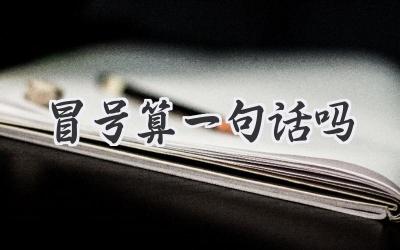 冒号算一句话吗